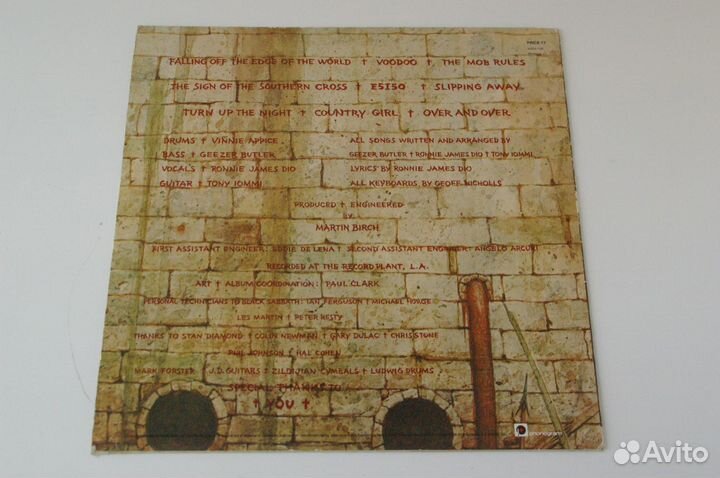 PRICE 17
FALLING OFF THE EDGE OF THE WORLD † VOODOO † THE MOB RULES
THE SIGN OF THE SOUTHERN CROSS † E5150 † SLIPPING AWAY
TURN UP THE NIGHT † COUNTRY GIRL † OVER AND OVER
DRUMS † VINNIE APPICE
BASS † GEEZER BUTLER
VOCALS † RONNIE JAMES DIO
GUITAR † TONY IOMMI
ALL SONGS WRITTEN AND ARRANGED BY
GEEZER BUTLER † RONNIE JAMES DIO † TONY IOMMI
LYRICS BY RONNIE JAMES DIO
ALL KEYBOARDS BY GEOFF NICHOLLS
PRODUCED † ENGINEERED
BY
MARTIN BIRCH
FIRST ASSISTANT ENGINEER: EDDIE DE LENA † SECOND ASSISTANT ENGINEER: ANGELO ARCURI
RECORDED AT THE RECORD PLANT, L.A.
ART † ALBUM COORDINATION: PAUL CLARK
PERSONAL TECHNICIANS TO BLACK SABBATH: IAN FERGUSON † MICHAEL HOWSE
LES MARTIN † PETER RESTY
THANKS TO STAN DIAMOND † COLIN NEWMAN † GARY DULAC † CHRIS STONE
PHIL JOHNSON † HAL COHEN
MARK FORSTER † J.D. GUITARS † ZILDJIAN CYMBALS † LUDWIG DRUMS
SPECIAL THANKS TO
† YOU †
phonogram
Avito